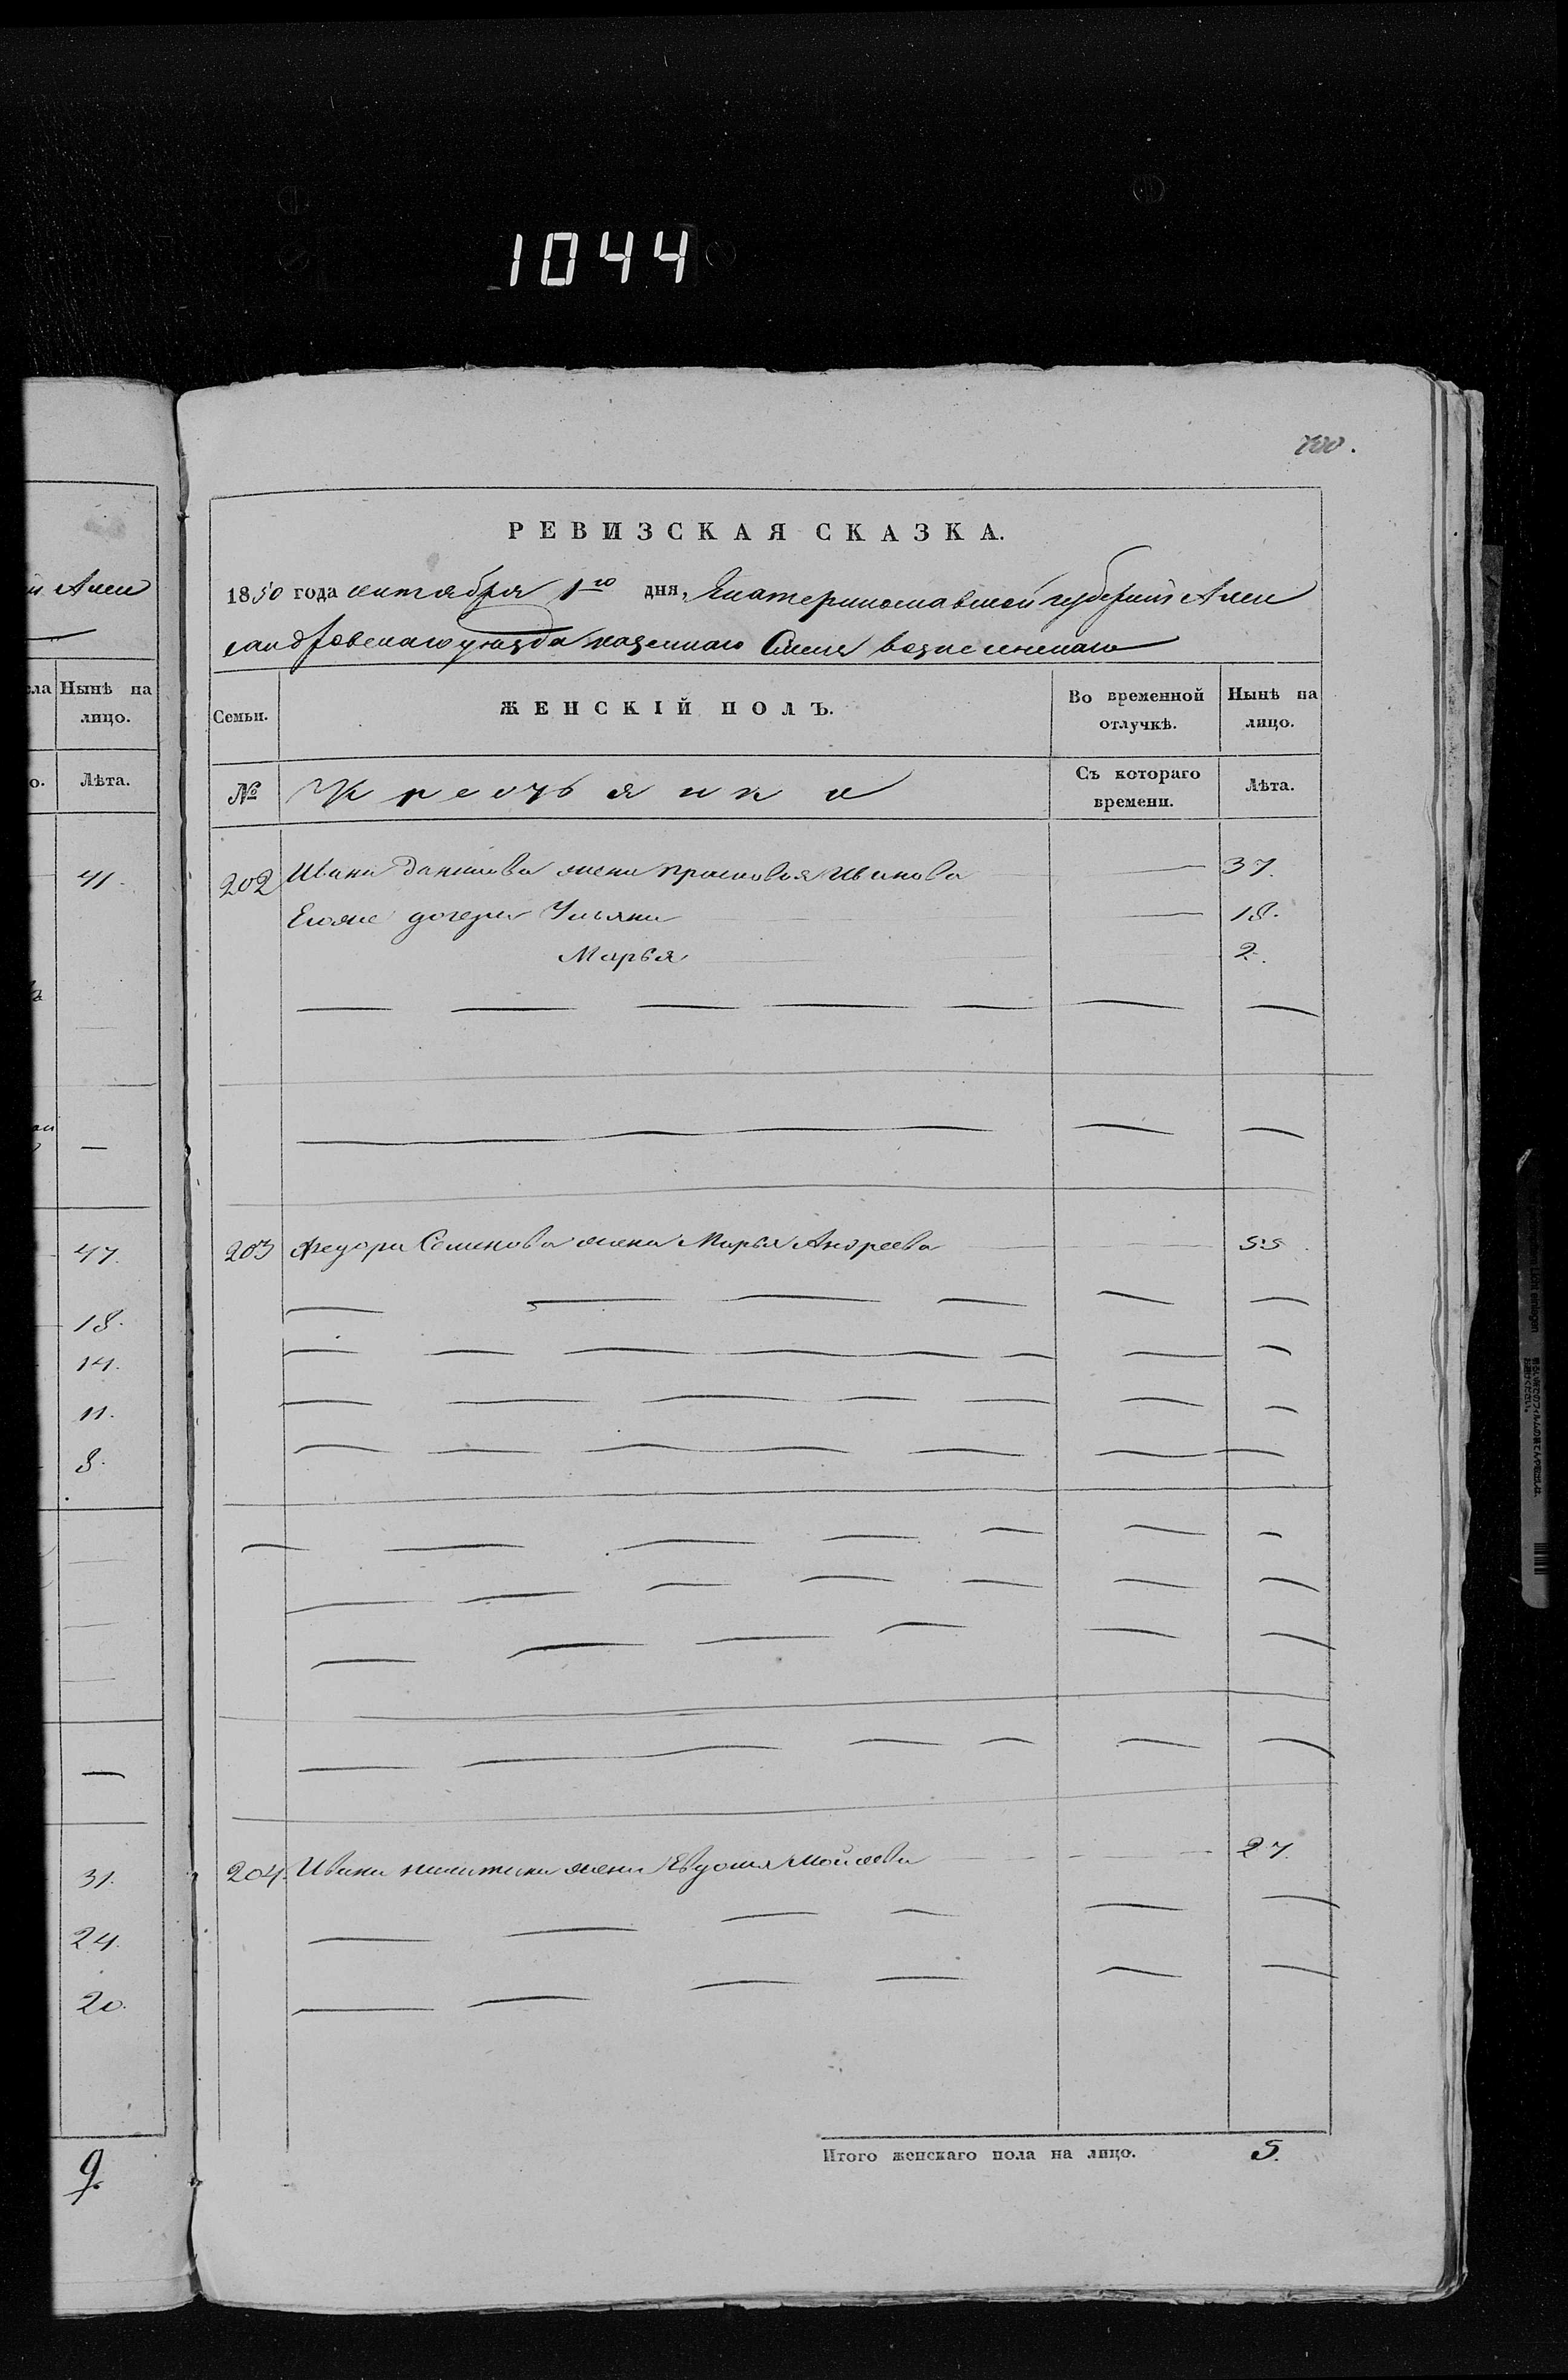 1044
700.
РЕВИЗСКАЯ СКАЗКА.
1850 года октября 1го дня, Екатеринославской губернии Алек
сандровскаго уезда казеннаго Села вознесенскаго
Семьи.
ЖЕНСКІЙ ПОЛЪ.
Во временной отлучкѣ.
Нынѣ на лицо.
№
Крестьянки
Съ котораго времени.
Лѣта.
202 Ивана Данилова жена прасковья Иванова 37.
Егоже дочери Ульяна 18.
Марья 2.
203 Федора Семенова жена Марья Андреева 55
204. Ивана никитина жена Евдокия Мойсеева 27.
Итого женскаго пола на лицо. 5.
й Алек
Нынѣ на лицо.
Лѣта.
41.
47.
18.
14.
11.
8.
31.
24.
20.
9.